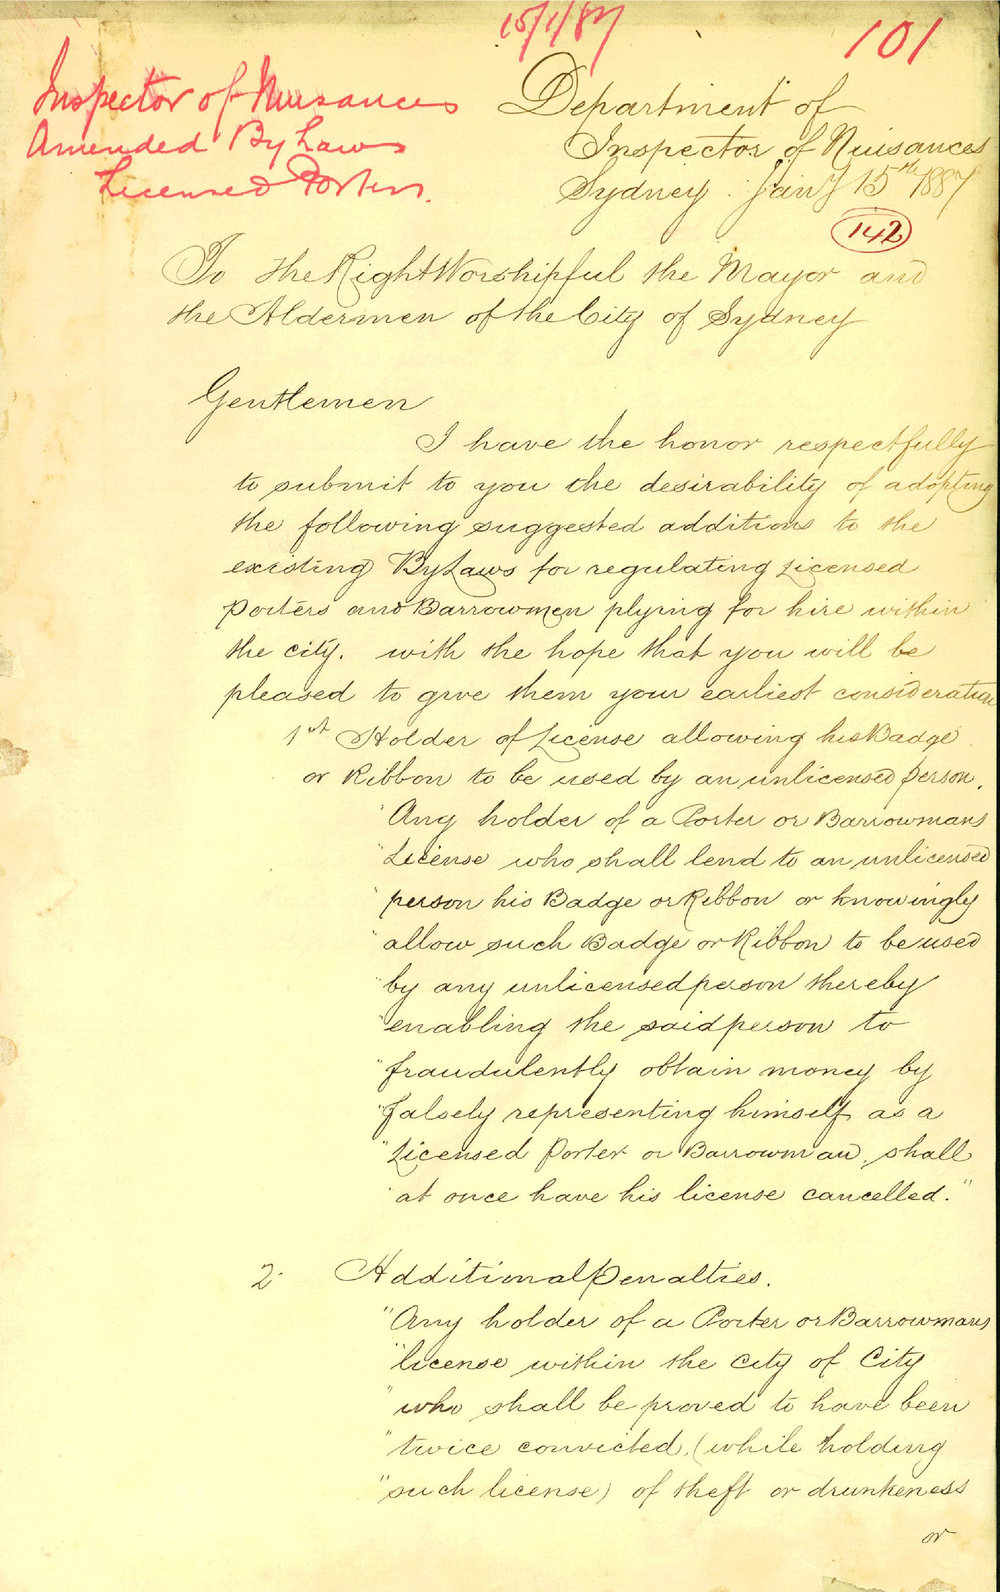 15/1/87
101
Inspector of Nuisances
Amended By Laws
Licensed Porters.
Department of
Inspector of Nuisances
Sydney Jany 15th 1887
142
To the Right Worshipful the Mayor and
the Aldermen of the City of Sydney
Gentlemen
I have the honor respectfully
to submit to you the desirability of adopting
the following suggested additions to the
existing By Laws for regulating Licensed
Porters and Barrowmen plying for hire within
the city. with the hope that you will be
pleased to give them your earliest consideration
1st Holder of License allowing his Badge
or Ribbon to be used by an unlicensed person.
"Any holder of a Porter or Barrowmans
"License who shall lend to an unlicensed
"person his Badge or Ribbon or knowingly
"allow such Badge or Ribbon to be used
"by any unlicensed person thereby
"enabling the said person to
"fraudulently obtain money by
"falsely representing himself as a
"Licensed Porter or Barrowman, shall
"at once have his license cancelled."
2. Additional Penalties.
"Any holder of a Porter or Barrowmans
"license within the City of City
"who shall be proved to have been
"twice convicted, (while holding
"such license) of theft or drunkeness
or